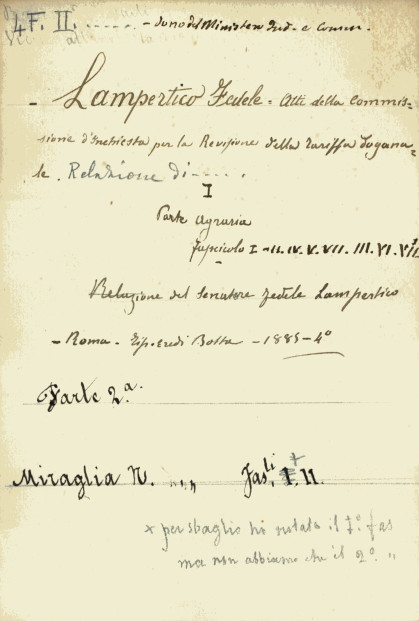 4F. II. ...... - dono del Ministero Ind. e Comm.
- Lampertico Fedele = Atti della Commis=
sione d'Inchiesta per la Revisione della tariffa dogana=
le. Relazione di .....
I
Parte Agraria
fascicolo I - II. IV. V. VII. III. VI. VIII
Relazione del Senatore Fedele Lampertico
- Roma - Tip. eredi Botta - 1885 - 4°
Parte 2ª.
Miraglia N. ..,, Fasli. I. II.
x per sbaglio ho notato il I° fas
ma non abbiamo che il 2° "